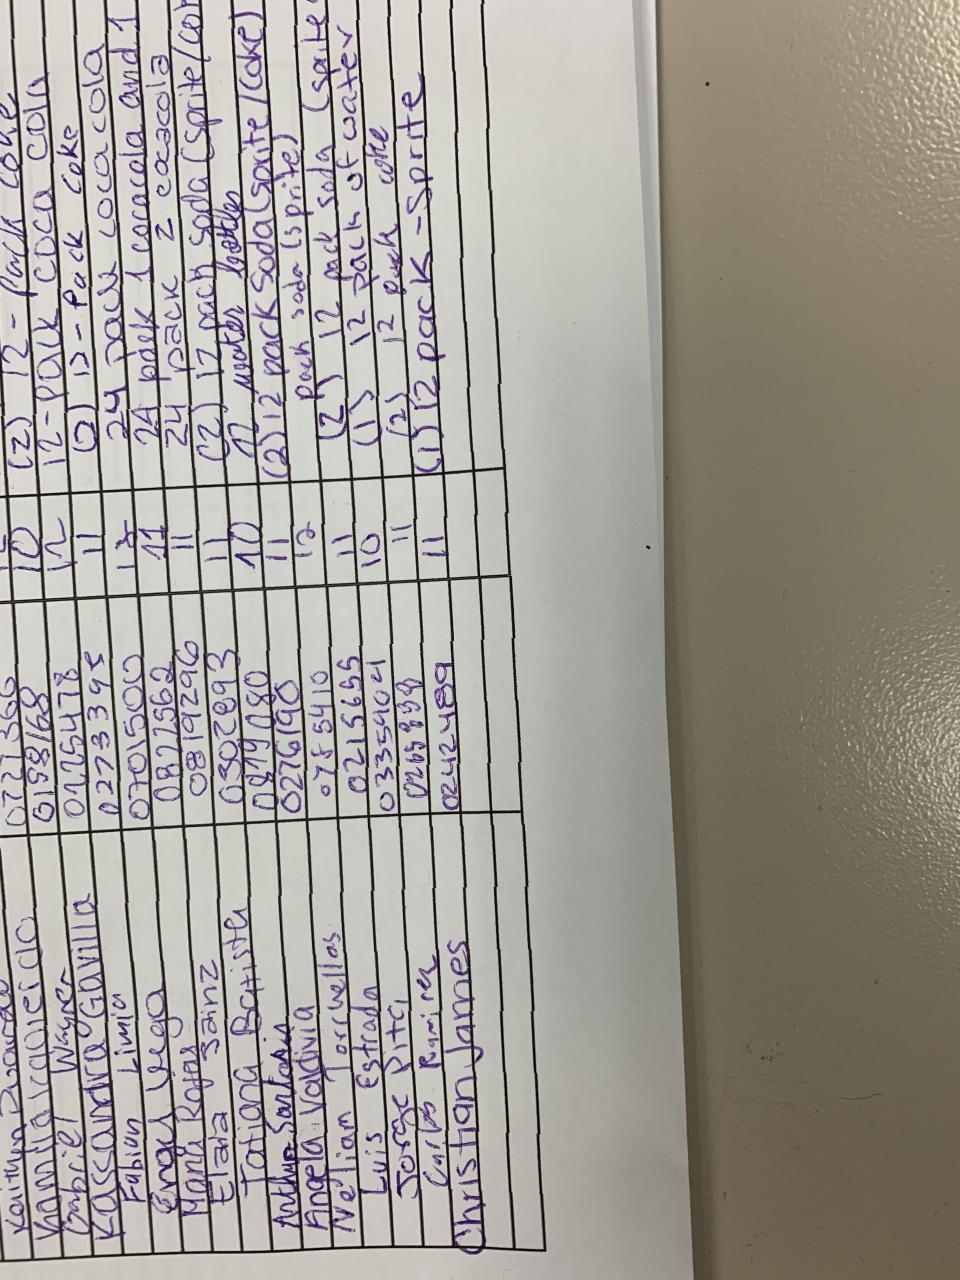 0221366 10 (2) 12-Pack Coke
Kamila Valdericio 0198168 12 12-pack coca cola
Gabriel Wayner 0225478 11 (2) 12-Pack Coke
Kassandra Gavilla 0273395 12 24 pack coca cola
Fabian Limia 0701500 11 24 pack 1 cocacola and 1
Engel Vega 0822562 11 24 pack 2 cocacola
Maria Rojas 0819296 11 (2) 12 pack soda (sprite/
Elaia Sainz 0302893 10 12 water bottles
Tatiana Batista 0891080 11 (2) 12 pack soda (sprite/coke)
0276190 12 pack soda (sprite)
Angela Valdivia 0785410 11 (2) 12 pack soda (sprite
Neyliam Torruellas 0215655 10 (1) 12 pack of water
Luis Estrada 0335404 11 (2) 12 pack coke
Jorge Pita 11 (1) 12 pack-Sprite
Carlos Ramirez 0242489
Christian James